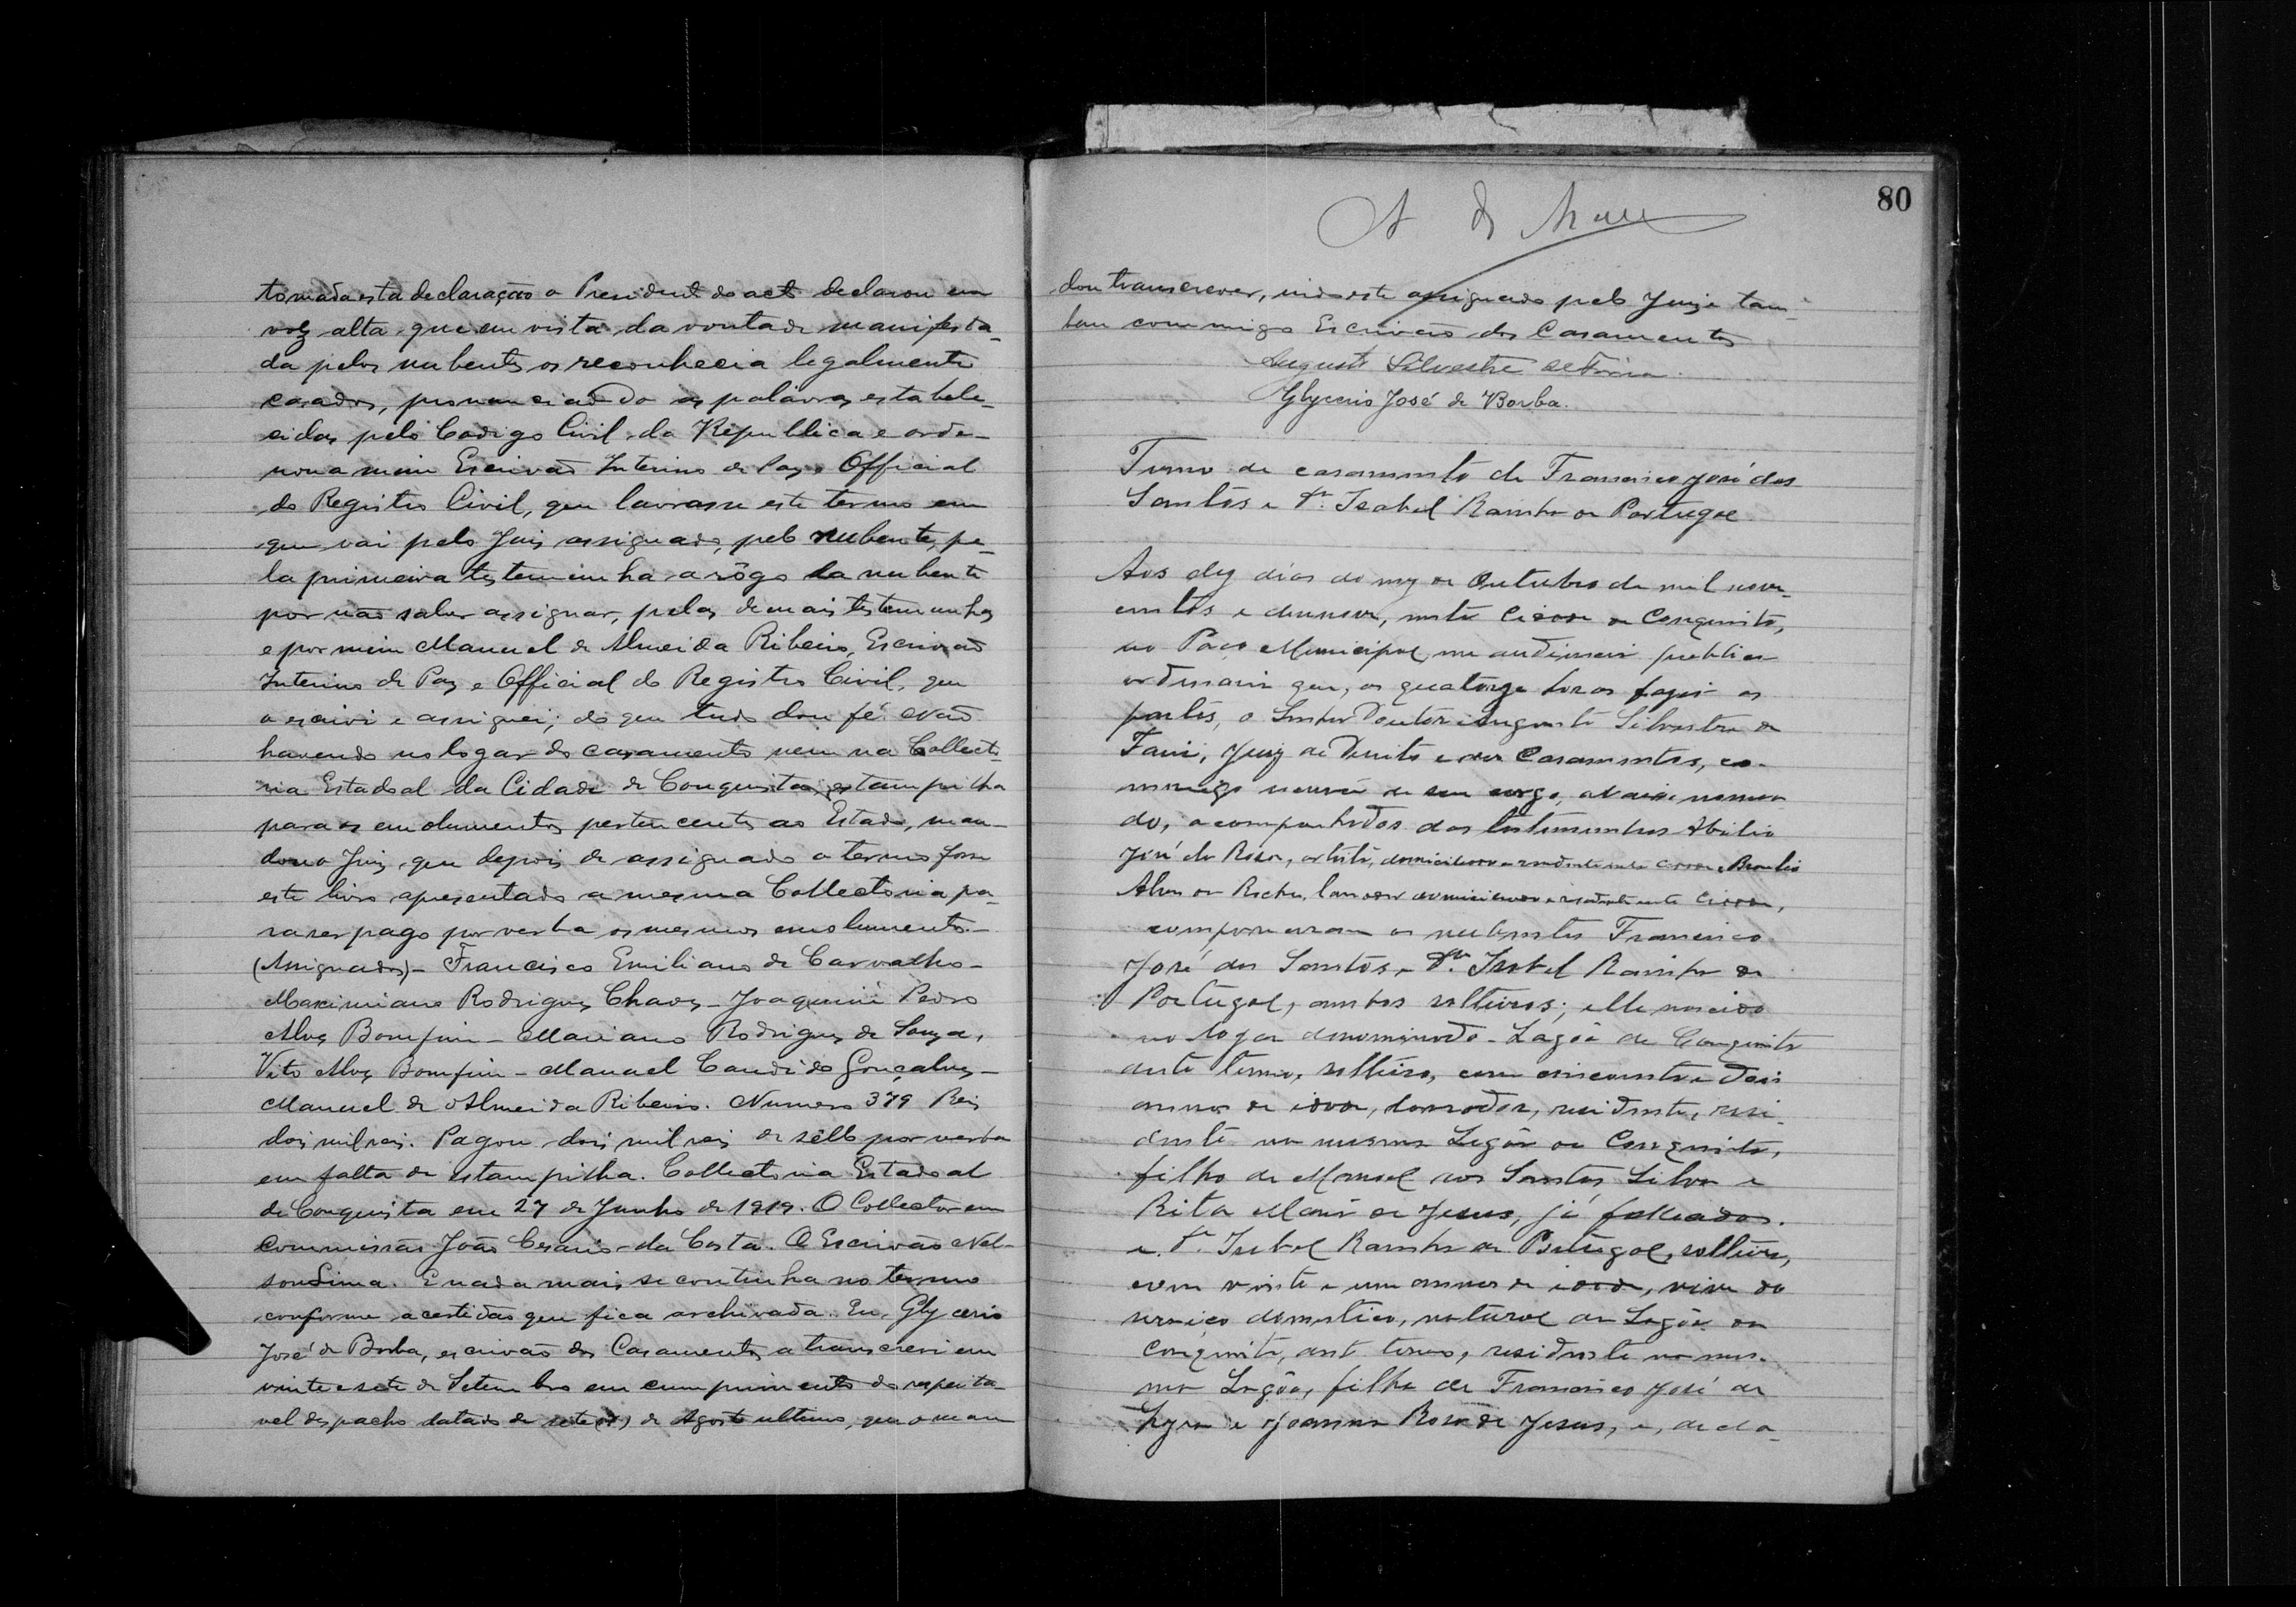 tomada esta declaração o Presidente do acto declarou em
voz alta que em vista da vontade manifesta-
da pelos nubentes os reconhecia legalmente
casados, pronunciando as palavras estabele-
cidas pelo Codigo Civil da Republica e orde-
nou a mim Escrivão Interino de Paz e Official
do Registro Civil, que lavrasse este termo em
que vai pelo Juiz assignado, pelo nubente, pe-
la primeira testemunha a rôgo da nubente
por não saber assignar, pelas demais testemunhas
e por mim Manuel de Almeida Ribeiro, Escrivão
Interino de Paz e Official do Registro Civil, que
o escrivi e assignei; do que tudo dou fé. Não
havendo no logar do casamento nem na Collecto-
ria Estadoal da Cidade de Conquista estampilha
para os emolumentos pertencentes ao Estado, man-
dou o Juiz que depois de assignado o termo fosse
este livro apresentado a mesma Collectoria pa-
ra ser pago por verba os mesmos emolumentos.-
(Assignados)- Francisco Emiliano de Carvalho-
Maximiano Rodrigues Chaves- Joaquim Pedro
Alves Bomfim- Mariano Rodrigues de Souza,
Vito Alves Bomfim- Manuel Candido Gonçalves-
Manuel de Almeida Ribeiro. Numero 379 Reis
dois mil reis. Pagou dois mil reis de sêllo por verba
em falta de estampilha. Collectoria Estadoal
de Conquista em 27 de Junho de 1919. O Collector em
Commissão João Cesario da Costa. O Escrivão Nel-
son Lima. E nada mais se continha no termo
conforme a certidão que fica archivada. Eu, Glycerio
José de Borba, escrivão dos Casamentos a transcrevi em
vinte e sete de Setembro em cumprimento do respeita-
vel despacho datado de sete (7) de Agosto ultimo, que o man
80
dou transcrever, indo este assignado pelo Juiz tam-
bem commigo Escrivão dos Casamentos
Augusto Silvestre de Faria
Glycerio José de Borba.
Termo de casamento de Francisco José dos
Santos e Da. Isabel Rainha de Portugal
Aos dez dias do mez de Outubro de mil nove-
centos e desenove, nesta Cidade de Conquista,
no Paço Municipal, em audiencia publica
ordinaria que, as quatorze horas fazia as
partes, o Senhor Doutor Augusto Silvestre de
Faria, Juiz de Direito e dos Casamentos, co-
mmigo escrivão de seu cargo, abaixo nomea
do, acompanhados das testemunhas Abilio
José da Rosa, artista, domiciliado e residente nesta Cidade e Braulio
Alves da Rocha, lavrador domiciliado e residente nesta Cidade,
compareceram os nubentes Francisco
José dos Santos e Da. Isabel Rainha de
Portugal, ambos solteiros; elle nascido
no logar denominado- Lagôa de Conquista
deste termo, solteiro, com cincoenta e dois
annos de idade, lavrador, residente, resi-
dente na mesma Lagôa de Conquista,
filho de Manoel dos Santos Silva e
Rita Maria de Jesus, já fallecidos.
e Da. Isabel Rainha de Portugal, solteira,
com vinte e um annos de idade, vive do
serviço domestico, natural da Lagôa de
Conquista, deste termo, residente na mes-
ma Lagôa, filha de Francisco José de
e Joanna Rosa de Jesus, e, decla-